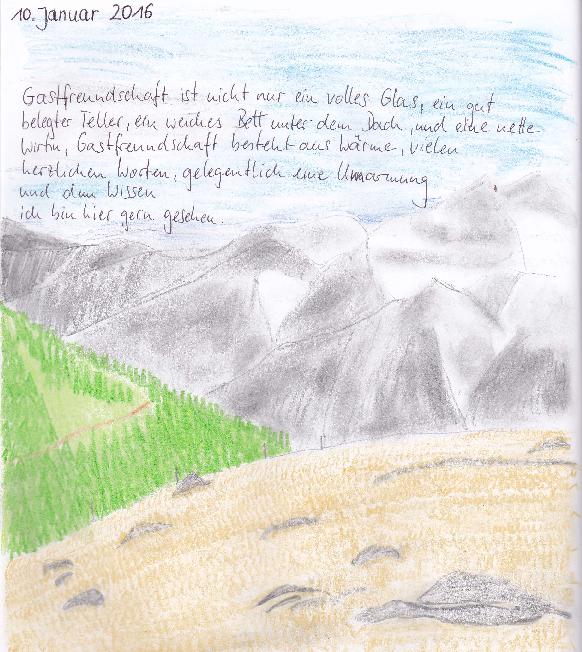 10. Januar 2016
Gastfreundschaft ist nicht nur ein volles Glas, ein gut
belegter Teller, ein weiches Bett unter dem Dach, und eine nette
Wirtin, Gastfreundschaft besteht aus Wärme, vielen
herzlichen Worten, gelegentlich eine Umarmung
und dem Wissen
ich bin hier gern gesehen.